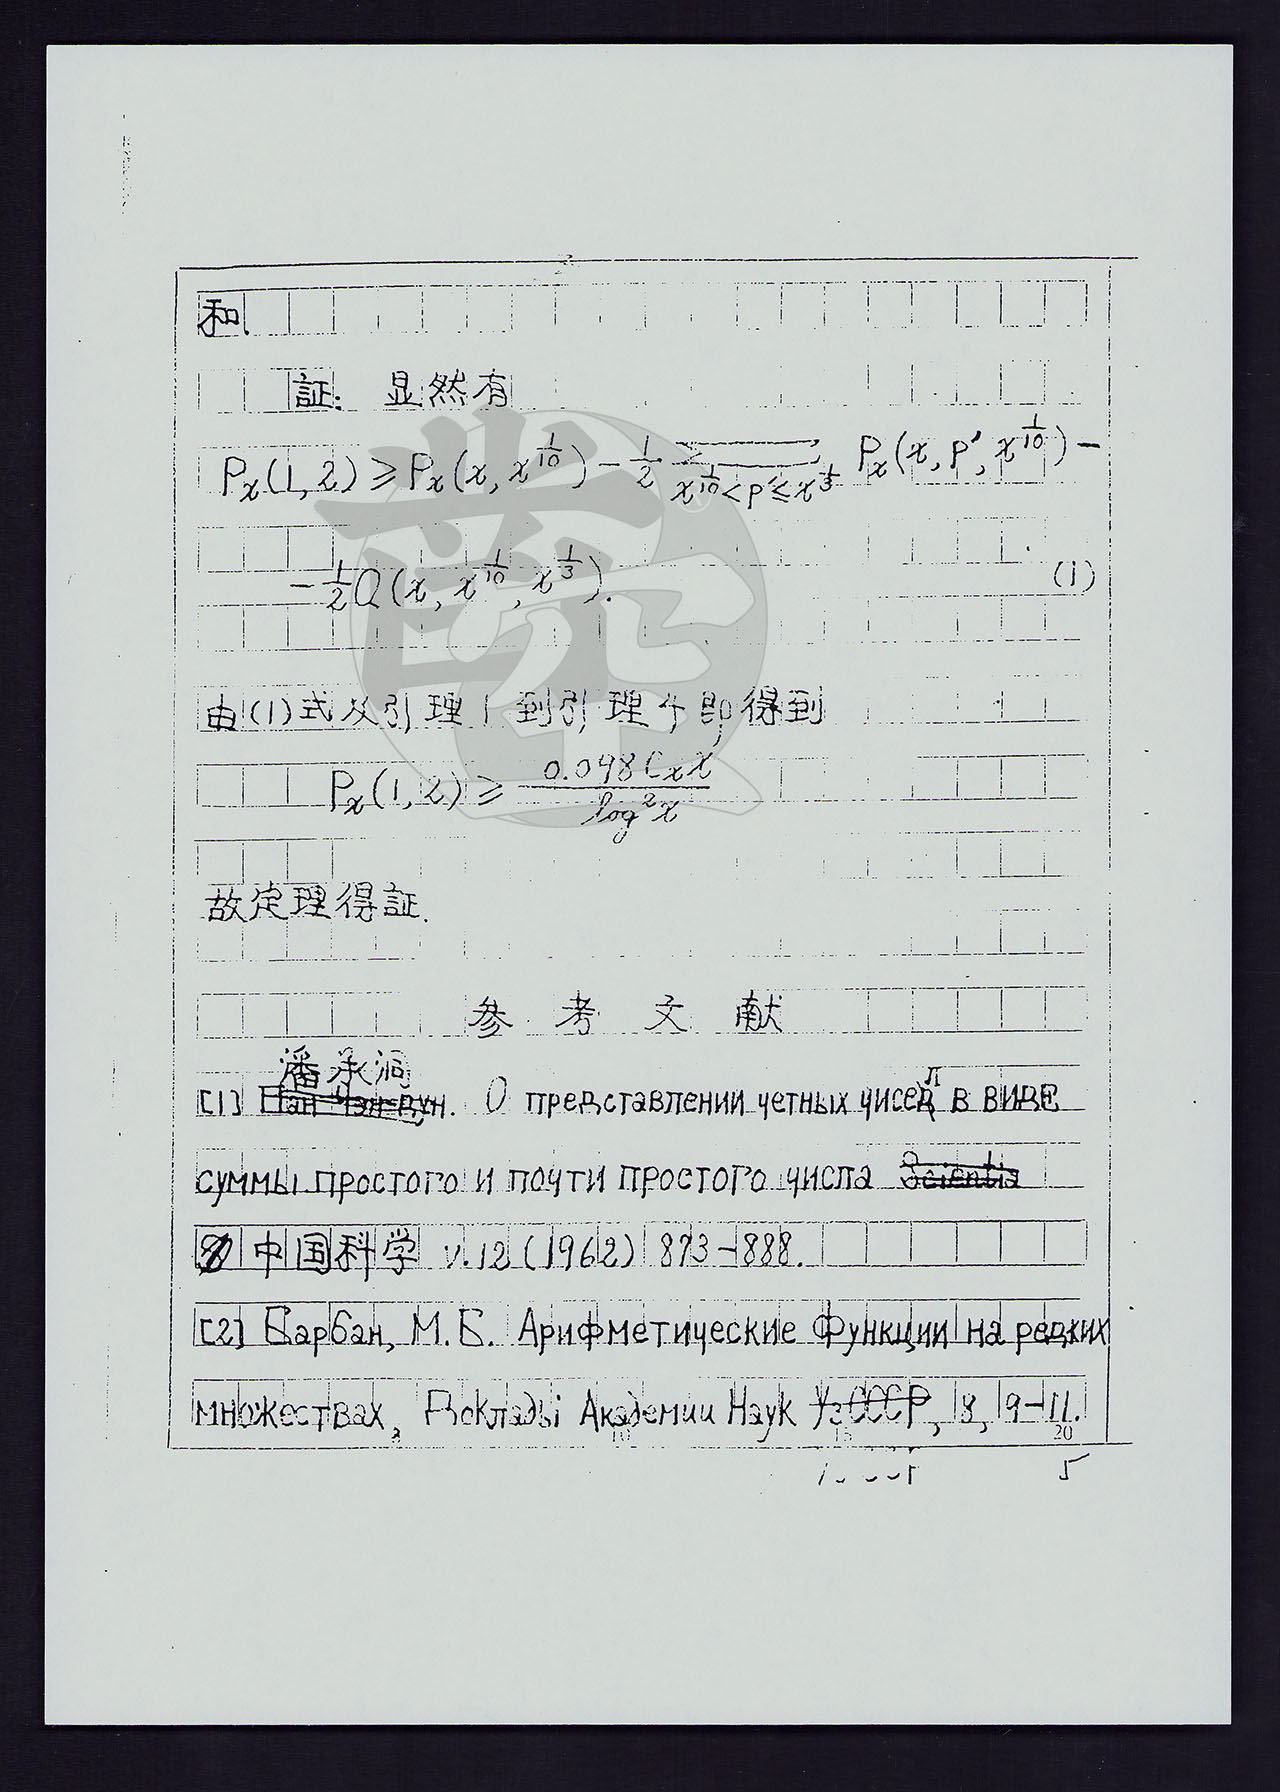 和.
証: 显然有
Pₓ(1, 2) ≥ Pₓ(x, x^{1/10}) − 1/2 ∑_{x^{1/10}<p'≤x^{1/3}} Pₓ(x, p', x^{1/10}) −
− 1/2 Ω(x, x^{1/10}, x^{1/3}). (1)
由(1)式及引理1到引理4,即得到
Pₓ(1, 2) ≥ 0.098 Cₓ x / log²x
故定理得証.
参考文献
潘承洞
[1] О представлении четных чисел в виде
суммы простого и почти простого числа Scientia
中国科学 v.12 (1962) 873-888.
[2] Барбан, М.Б. Арифметические Функции на редких
множествах, Доклады Академии Наук УзСССР, 8, 9-11.
10 15 20
5